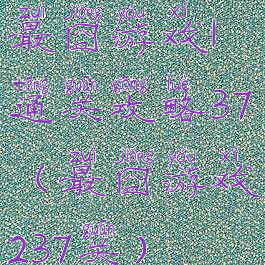 zuì jiǒng yóu xì
最囧游戏1
tōng guān gōng lüè
通关攻略37
zuì jiǒng yóu xì
（最囧游戏
guān
237关）